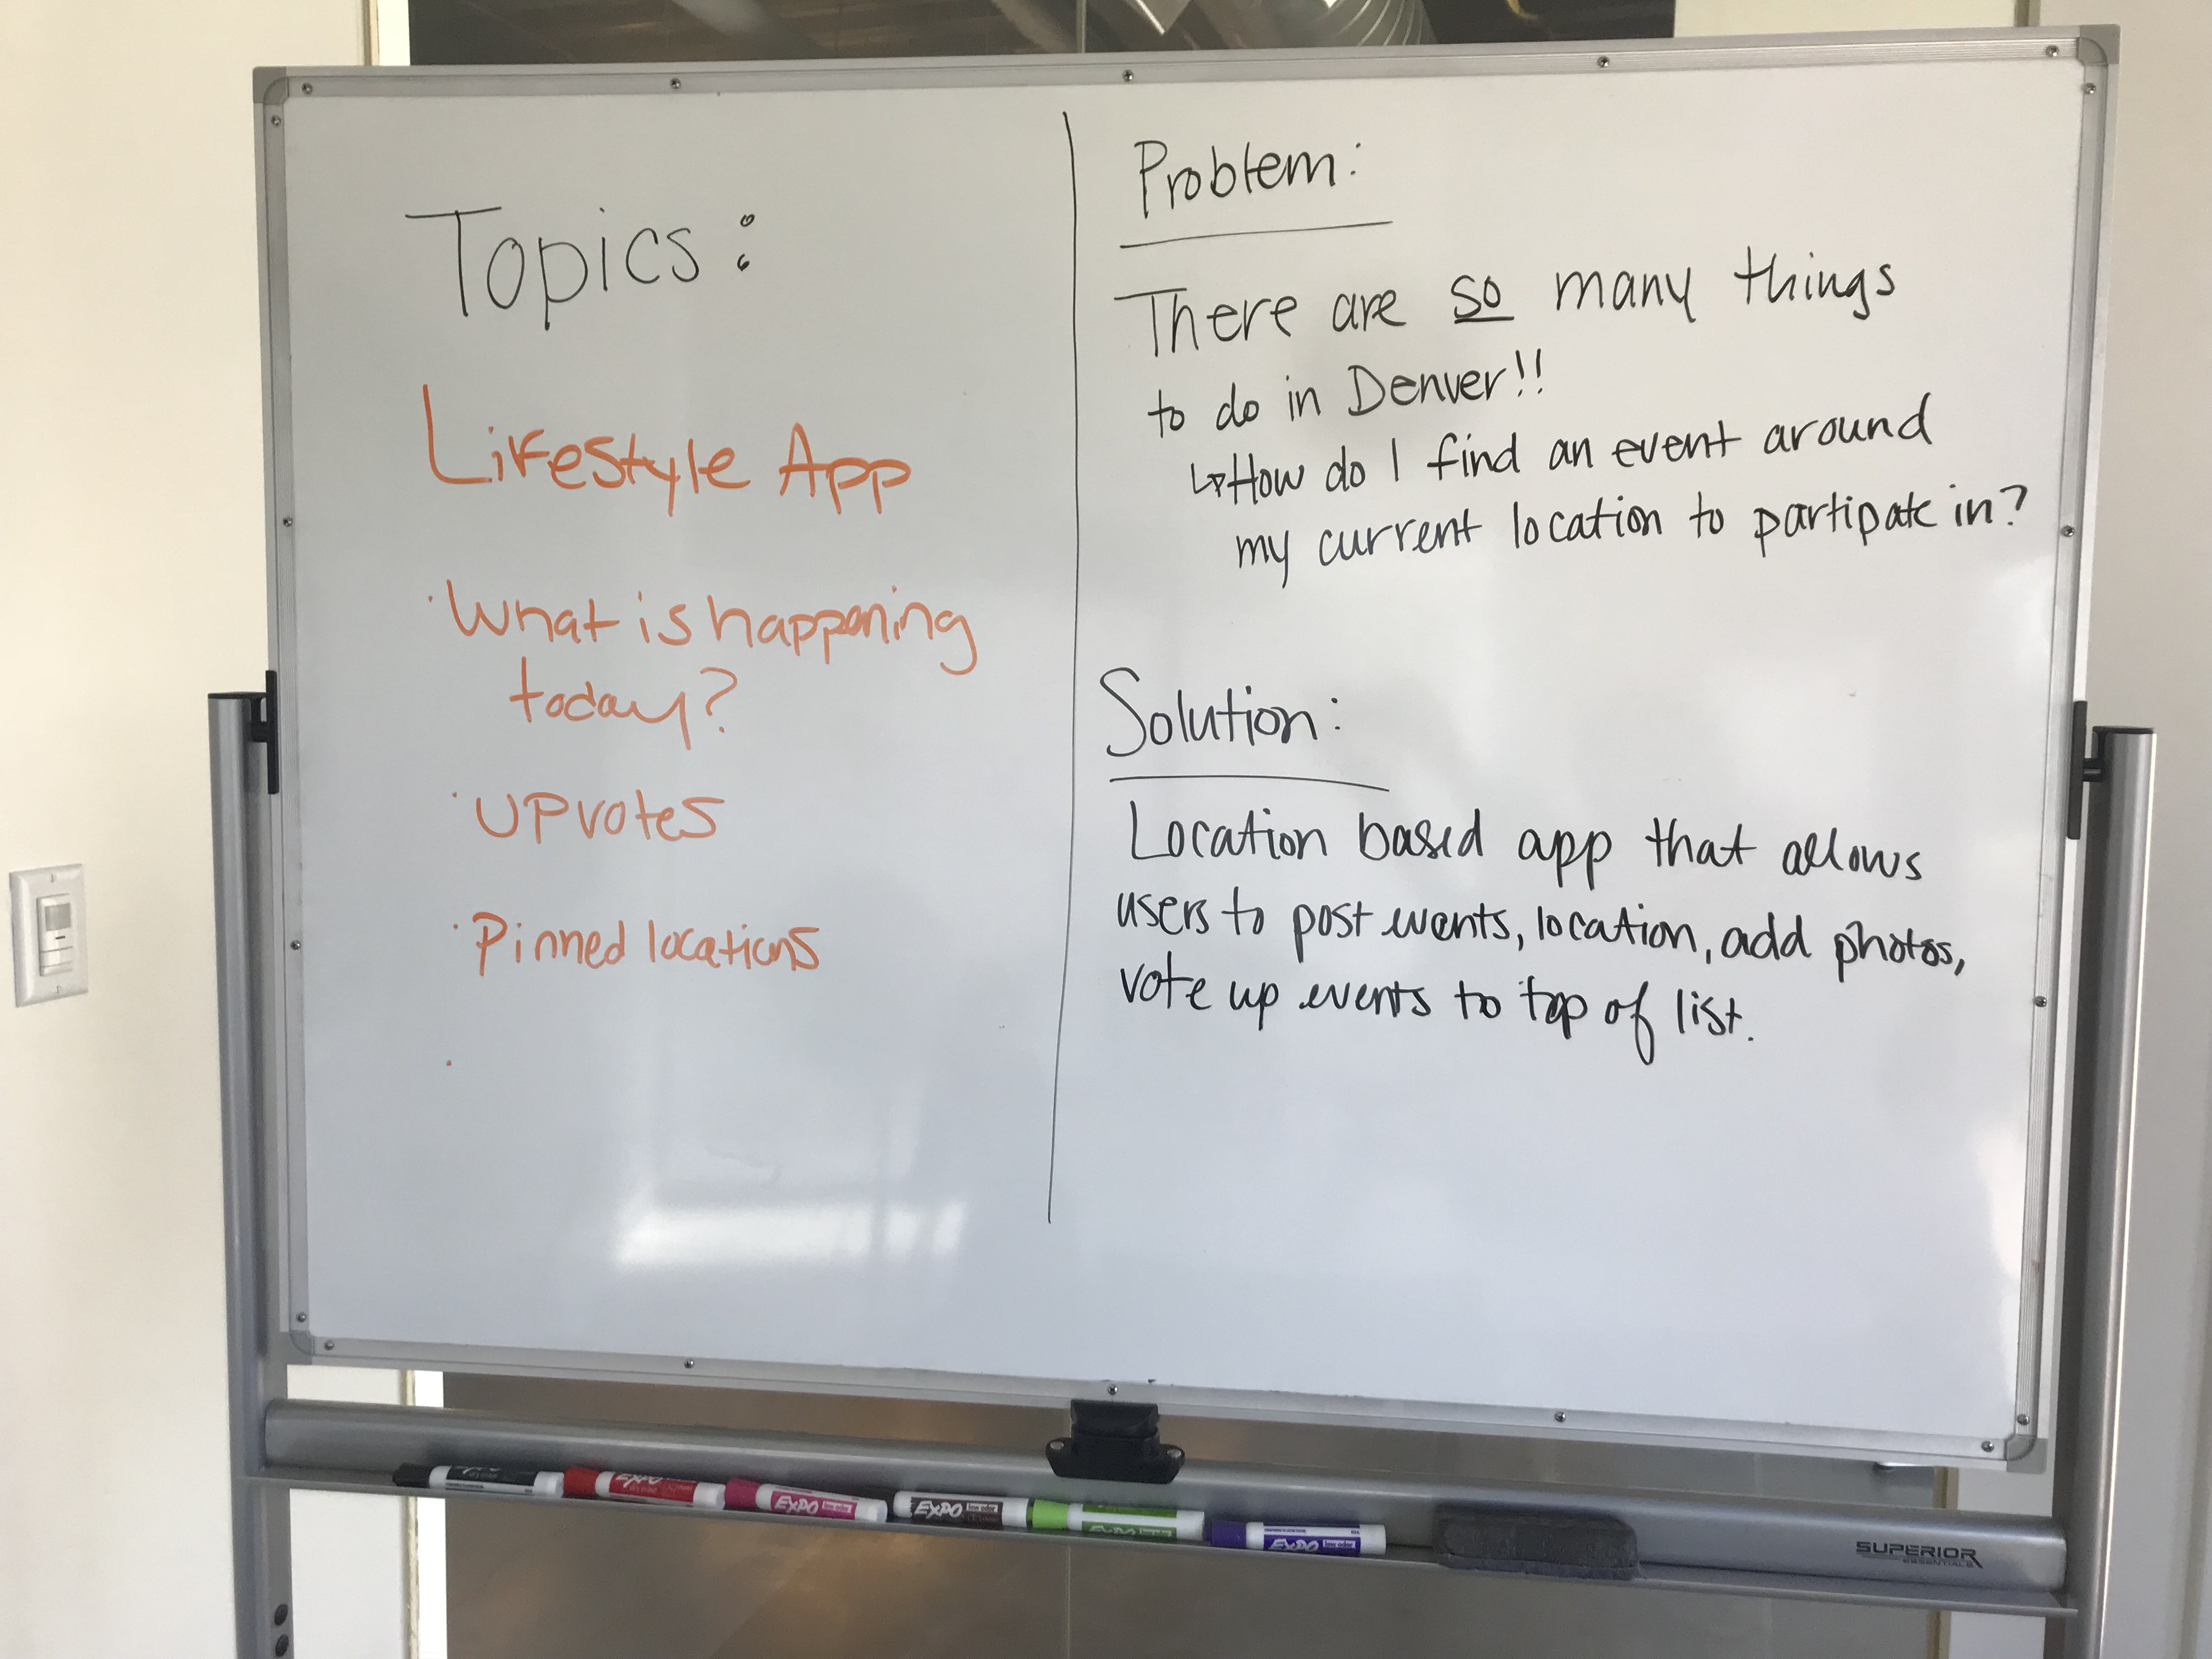 Topics:
Lifestyle App
·What is happening
today?
·Upvotes
·Pinned locations
·
Problem:
There are so many things
to do in Denver!!
↳How do I find an event around
my current location to partipate in?
Solution:
Location based app that allows
users to post events, location, add photos,
vote up events to top of list.
EXPO
EXPO low odor
EXPO low odor
EXPO
EXPO low odor
SUPERIOR
ESSENTIALS